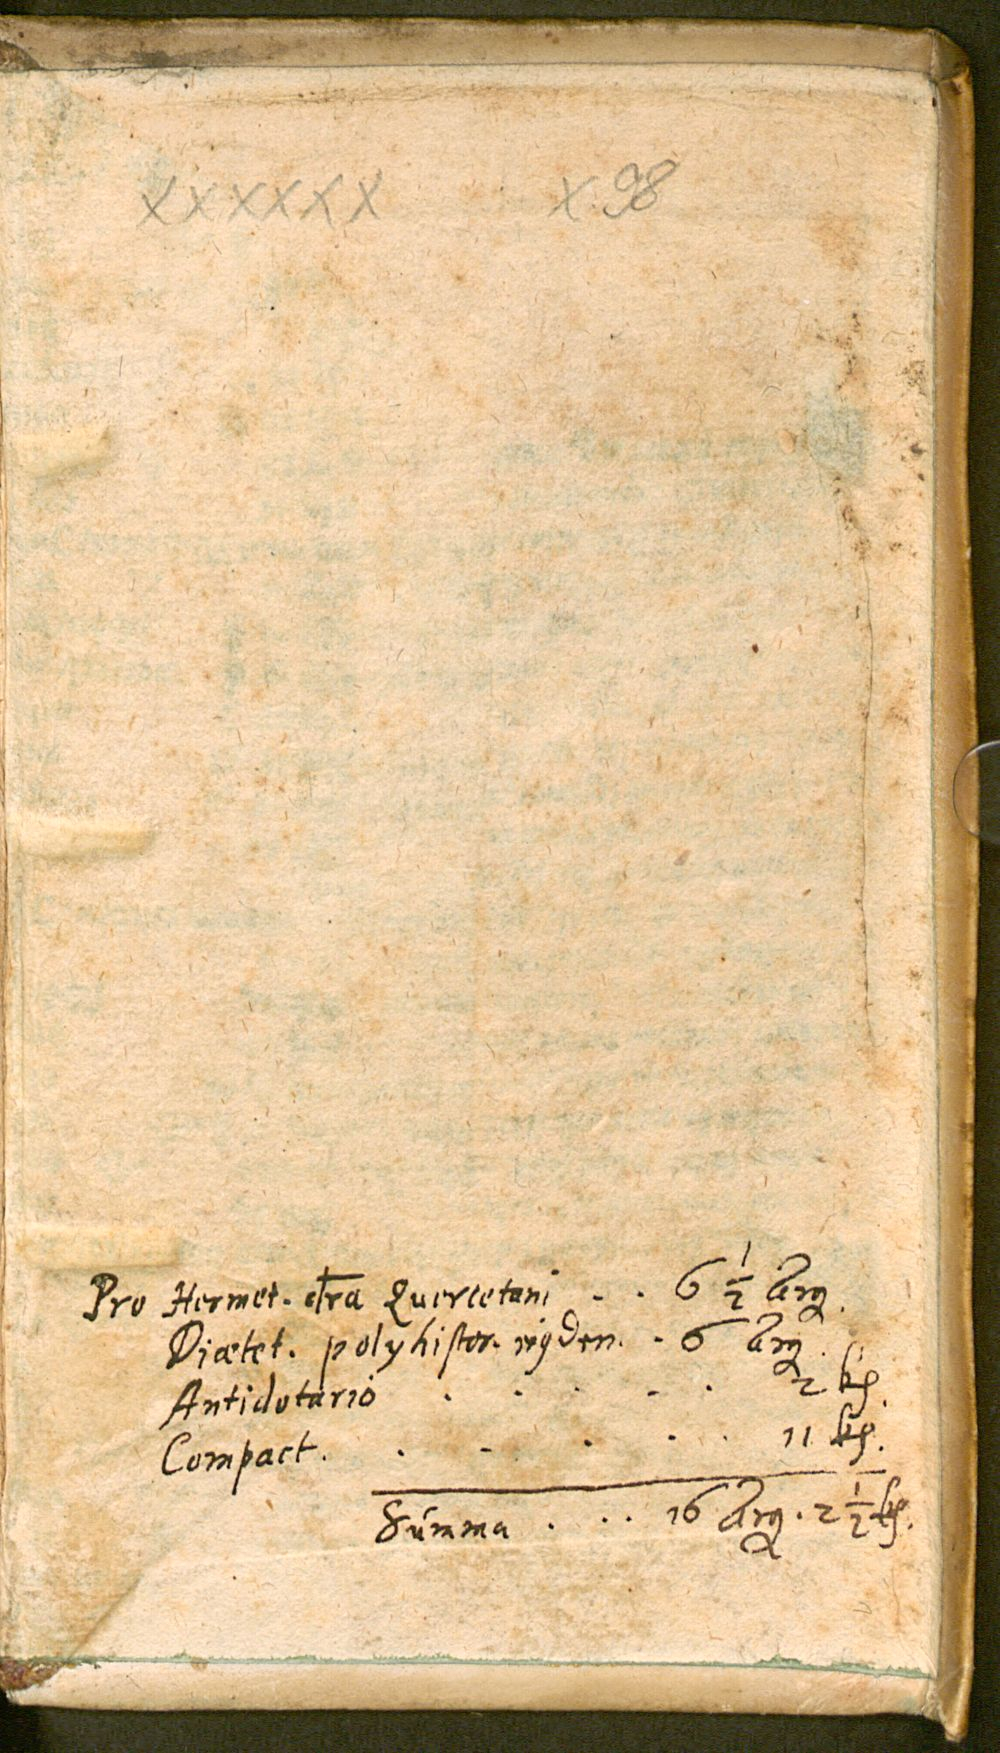 XXXXXX X 98
Pro Hermet. c̄tra Quercetani . . 6 1/2 Arg.
Diætet. polyhistor. . 6 Arg.
Antidotario . . . . . 2 kß.
Compact. . . . . . 11 kß.
Summa . . . 16 Arg. 2 1/2 kß.